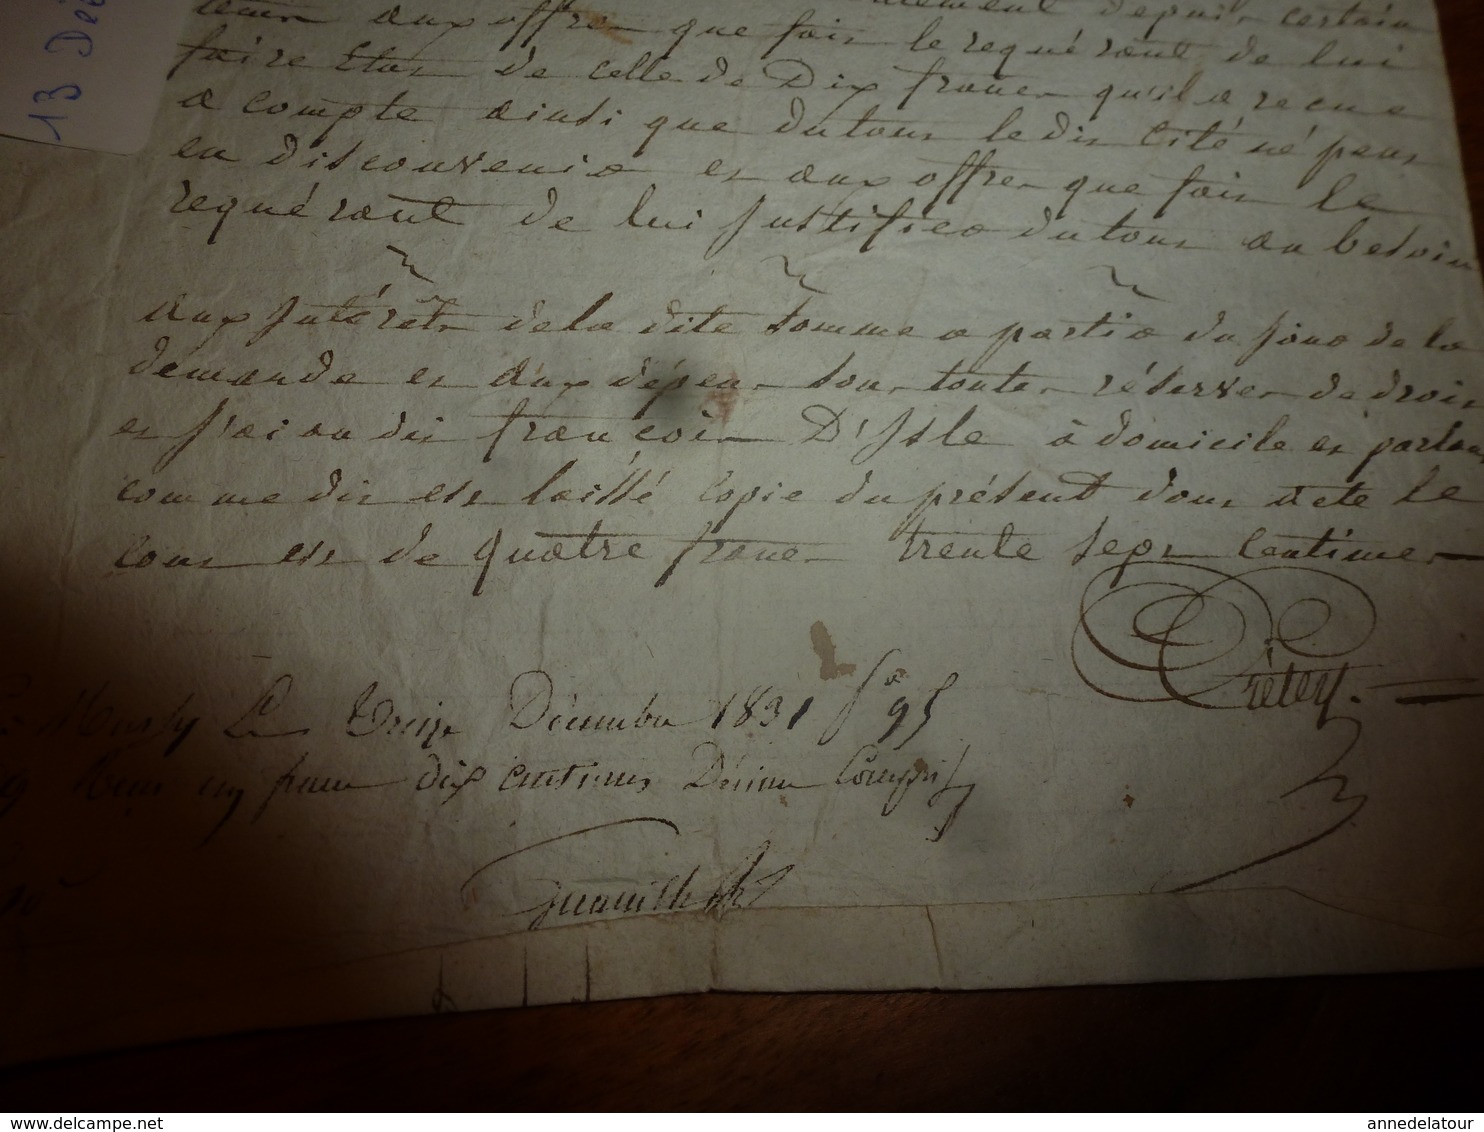 13 Dé
depuis certain
tems aux offres que fais le requérant de lui
faire Etat de celle de Dix francs qu'il a recue
a compte ainsi que du tout le dit Cité né peut
en disconvenir et aux offres que fais le
requérant de lui justifier du tout au besoin
aux Intérêts de la dite somme a partir du jour de la
demande et aux dépens sous toutes réserves de droit
et j'ai au dit françois D'Isle à domicile et parlant
comme dit est laissé copie du présent dont acte le
cout est de quatre francs trente sept Centimes
Prétey.
Le Treize Décembre 1831 f° 95
un franc dix centimes Décime Compris
annedelatour